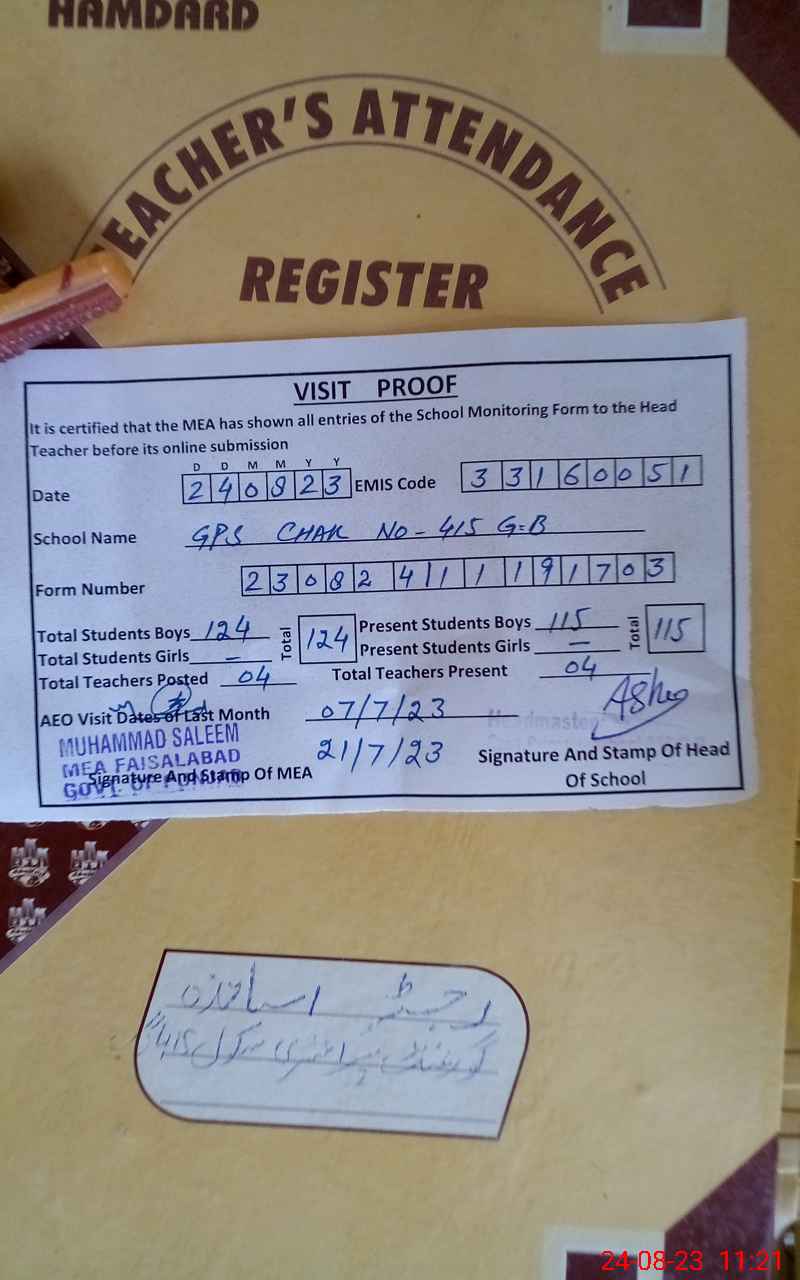 HAMDARD
TEACHER'S ATTENDANCE
REGISTER
VISIT PROOF
It is certified that the MEA has shown all entries of the School Monitoring Form to the Head
Teacher before its online submission
D D M M Y Y
Date 240823 EMIS Code 33160051
School Name GPS CHAK NO-415 G=B
Form Number 230824111191703
Total Students Boys 124 Total 124 Present Students Boys 115 Total 115
Total Students Girls - Present Students Girls -
Total Teachers Posted 04 Total Teachers Present 04
AEO Visit Dates of Last Month 07/7/23
21/7/23
MUHAMMAD SALEEM
MEA FAISALABAD
GOVT. OF PUNJAB
Signature And Stamp Of MEA
Headmaster
Signature And Stamp Of Head
Of School
رجسٹر اساتذہ
گورنمنٹ پرائمری سکول 415
24-08-23 11:21